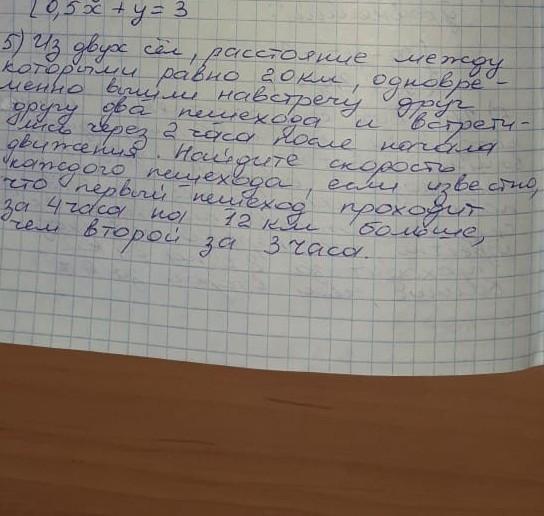 0,5x + y = 3
5) Из двух сёл, расстояние между
которыми равно 20 км, одновре-
менно вышли навстречу друг
другу два пешехода и встрети-
лись через 2 часа после начала
движения. Найдите скорость
каждого пешехода, если известно,
что первый пешеход проходит
за 4 часа на 12 км больше,
чем второй за 3 часа.